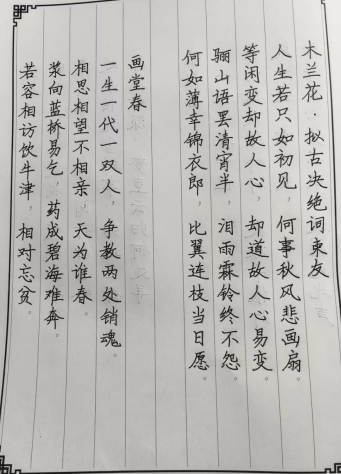 木兰花·拟古决绝词柬友
人生若只如初见，何事秋风悲画扇。
等闲变却故人心，却道故人心易变。
骊山语罢清宵半，泪雨霖铃终不怨。
何如薄幸锦衣郎，比翼连枝当日愿。
画堂春
一生一代一双人，争教两处销魂。
相思相望不相亲，天为谁春。
浆向蓝桥易乞，药成碧海难奔。
若容相访饮牛津，相对忘贫。